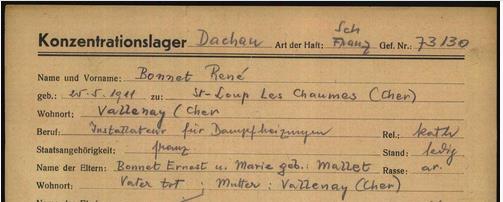 Sch
Konzentrationslager Dachau Art der Haft: Franz Gef. Nr.: 73130
Name und Vorname: Bonnet René
geb.: 25.5.1911 zu: St-Loup Les Chaumes (Cher)
Wohnort: Vallenay (Cher
Beruf: Installateur für Dampfheizungen Rel.: kath
Staatsangehörigkeit: franz Stand: ledig
Name der Eltern: Bonnet Ernest u. Marie geb: Mallet Rasse: ar.
Wohnort: Vater tot ; Mutter: Vallenay (Cher)